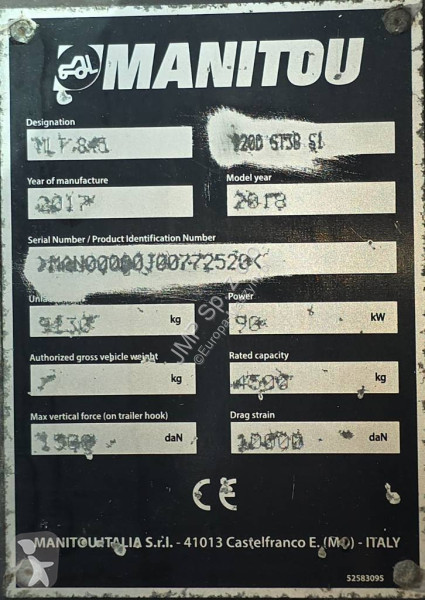 MANITOU
Designation
MLT 845 120D ST3B S1
Year of manufacture Model year
2017 2018
Serial Number / Product Identification Number
>MAN00000J00772520<
Power
90 kW
kg
Authorized gross vehicle weight Rated capacity
kg 4500 kg
Max vertical force (on trailer hook) Drag strain
daN 10000 daN
CE
MANITOU ITALIA S.r.l. - 41013 Castelfranco E. (MO) - ITALY
52583095
JMP Sp. z o.o.